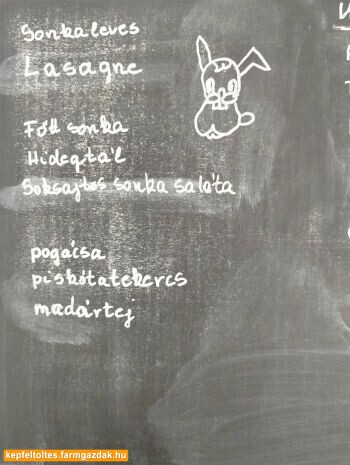 Sonkaleves
Lasagne
Főtt sonka
Hidegtál
Soksajtos sonka saláta
pogácsa
piskótatekercs
madártej
kepfeltoltes.farmgazdak.hu